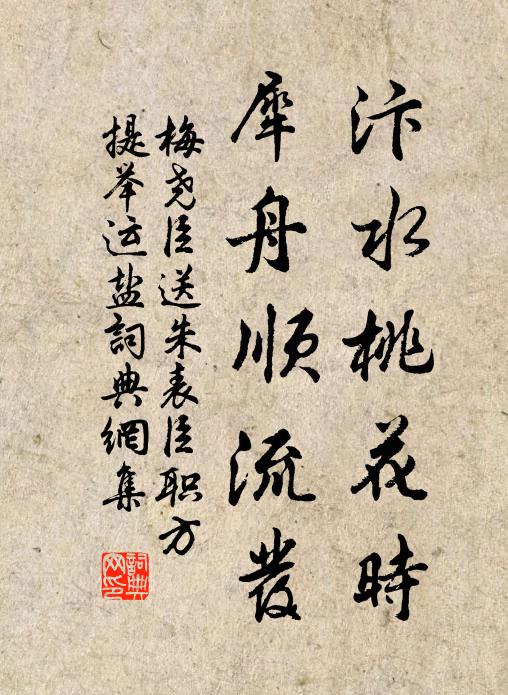 汴水桃花時
犀舟順流發
梅尧臣送朱表臣职方
提举运盐詞典網集
詞典
网印